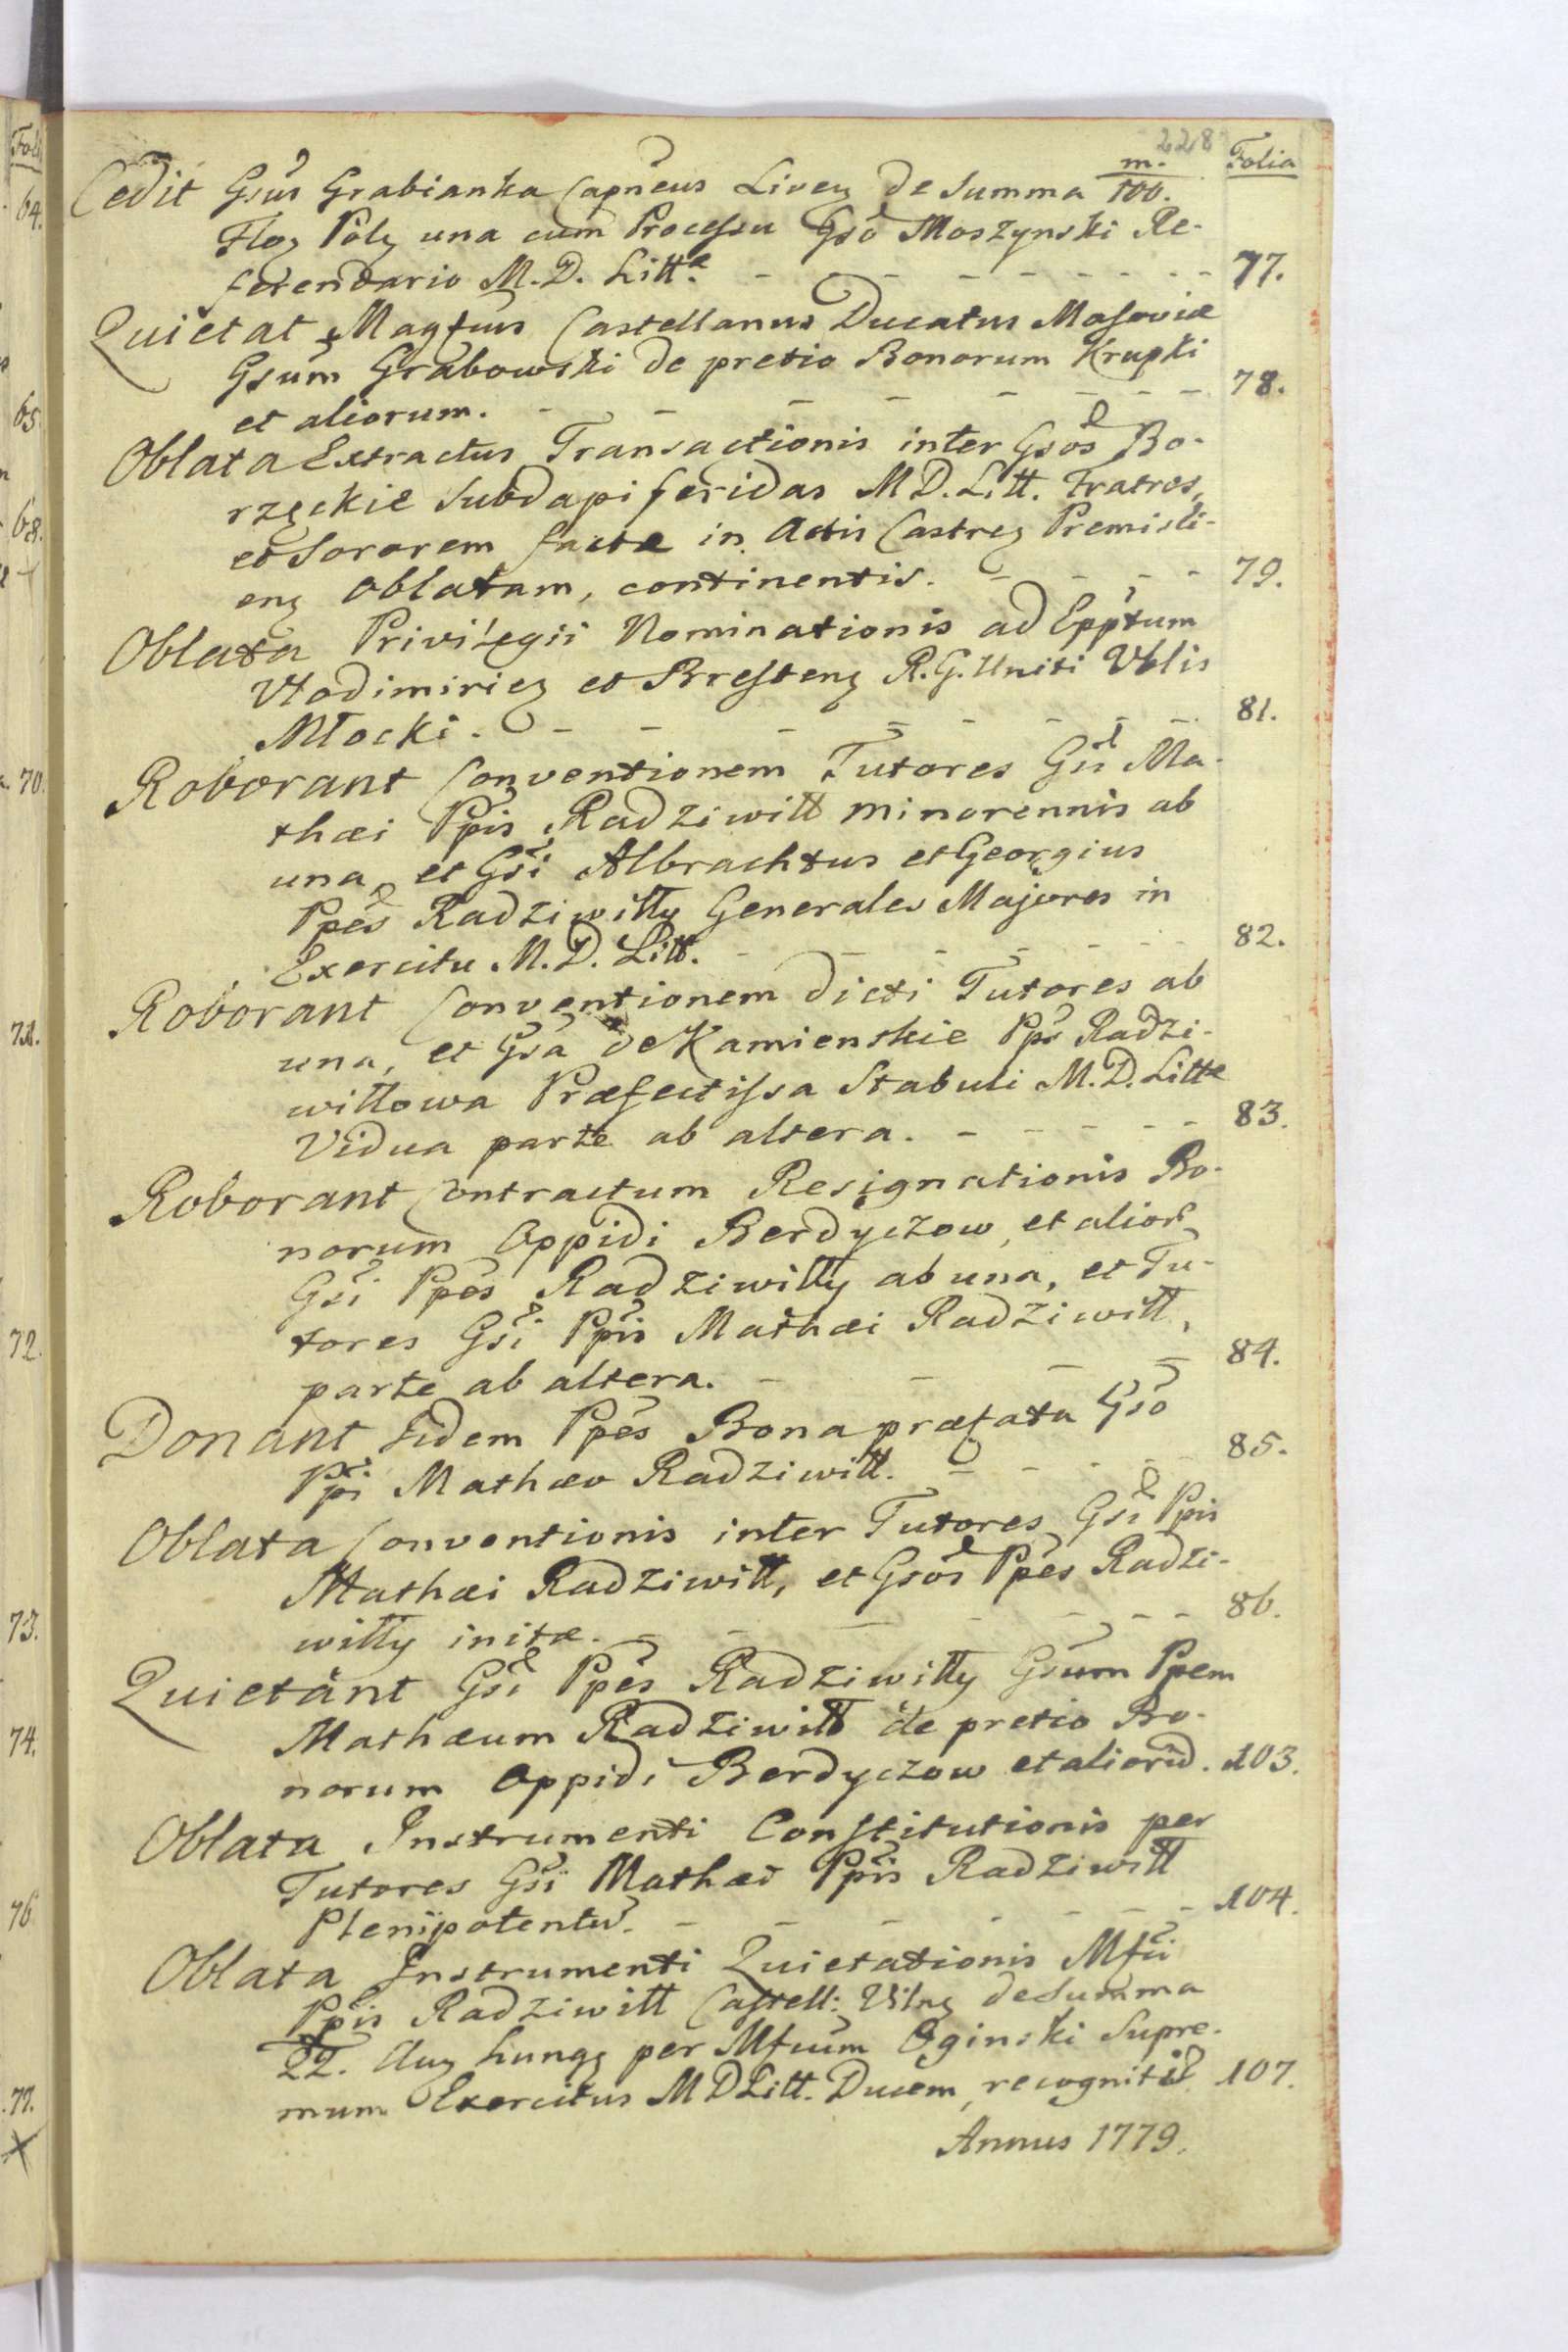 228
m. Folia
Cedit Gsus Grabianka Capneus Livez de Summa 100.
Floz Polz una cum Processu Gso Moszynski Re-
ferendario M. D. Litt. - - - - - - - - 77.
Quietat Magfcus Castellanus Ducatus Masoviæ
Gsum Grabowski de pretio Bonorum Krupki
et aliorum. - - - - - - - - 78.
Oblata Extractus Transactionis inter Gsos Bo-
rzęckie Subdapiferidas M D. Litt. Fratres,
et Sororem factæ in Actis Castrez Premisli-
enz oblatam, continentis. - - - - 79.
Oblata Privilegii Nominationis ad Epptum
Vlodimiriez et Brestenz R. G. Uniti Vblis
Młocki. - - - - - - - - 81.
Roborant Conventionem Tutores Gsi Ma-
thæi Ppis Radziwiłł minorennis ab
una, et Gsi Albrachtus et Georgius
Ppes Radziwiłły Generales Majores in
Exercitu M. D. Litt. - - - - - - 82.
Roborant Conventionem dicti Tutores ab
una, et Gsa de Kamienskie Pps Radzi-
wiłłowa Præfectissa Stabuli M. D. Littæ
Vidua parte ab altera. - - - - - 83.
Roborant Contractum Resignationis Bo-
norum Oppidi Berdyczow, et alior
Gsi Ppes Radziwiłły ab una, et Tu-
tores Gsi Ppis Mathæi Radziwiłł,
parte ab altera. - - - - 84.
Donant Iidem Ppes Bona præfata Gso
Ppi Mathæo Radziwiłł. - - - - 85.
Oblata Conventionis inter Tutores Gsi Ppis
Mathæi Radziwiłł, et Gsos Ppes Radzi-
wiłły initæ. - - - - - - - 86.
Quietant Gsi Ppes Radziwiłły Gsum Ppem
Mathæum Radziwiłł de pretio Bo-
norum Oppidi Berdyczow et aliorũ. 103.
Oblata Instrumenti Constitutionis per
Tutores Gsi Mathæi Ppis Radziwiłł
Plenipotentis. - - - - - - - 104.
Oblata Instrumenti Quietationis Mfci
Ppis Radziwiłł Castell: Vilnz de Summa
22. Auz hungz per Mfcum Oginski Supre-
mum Exercitus M D Litt. Ducem, recogniti 107.
Annus 1779.
Foli
64.
65.
68.
70.
71.
72.
73.
74.
76
77.